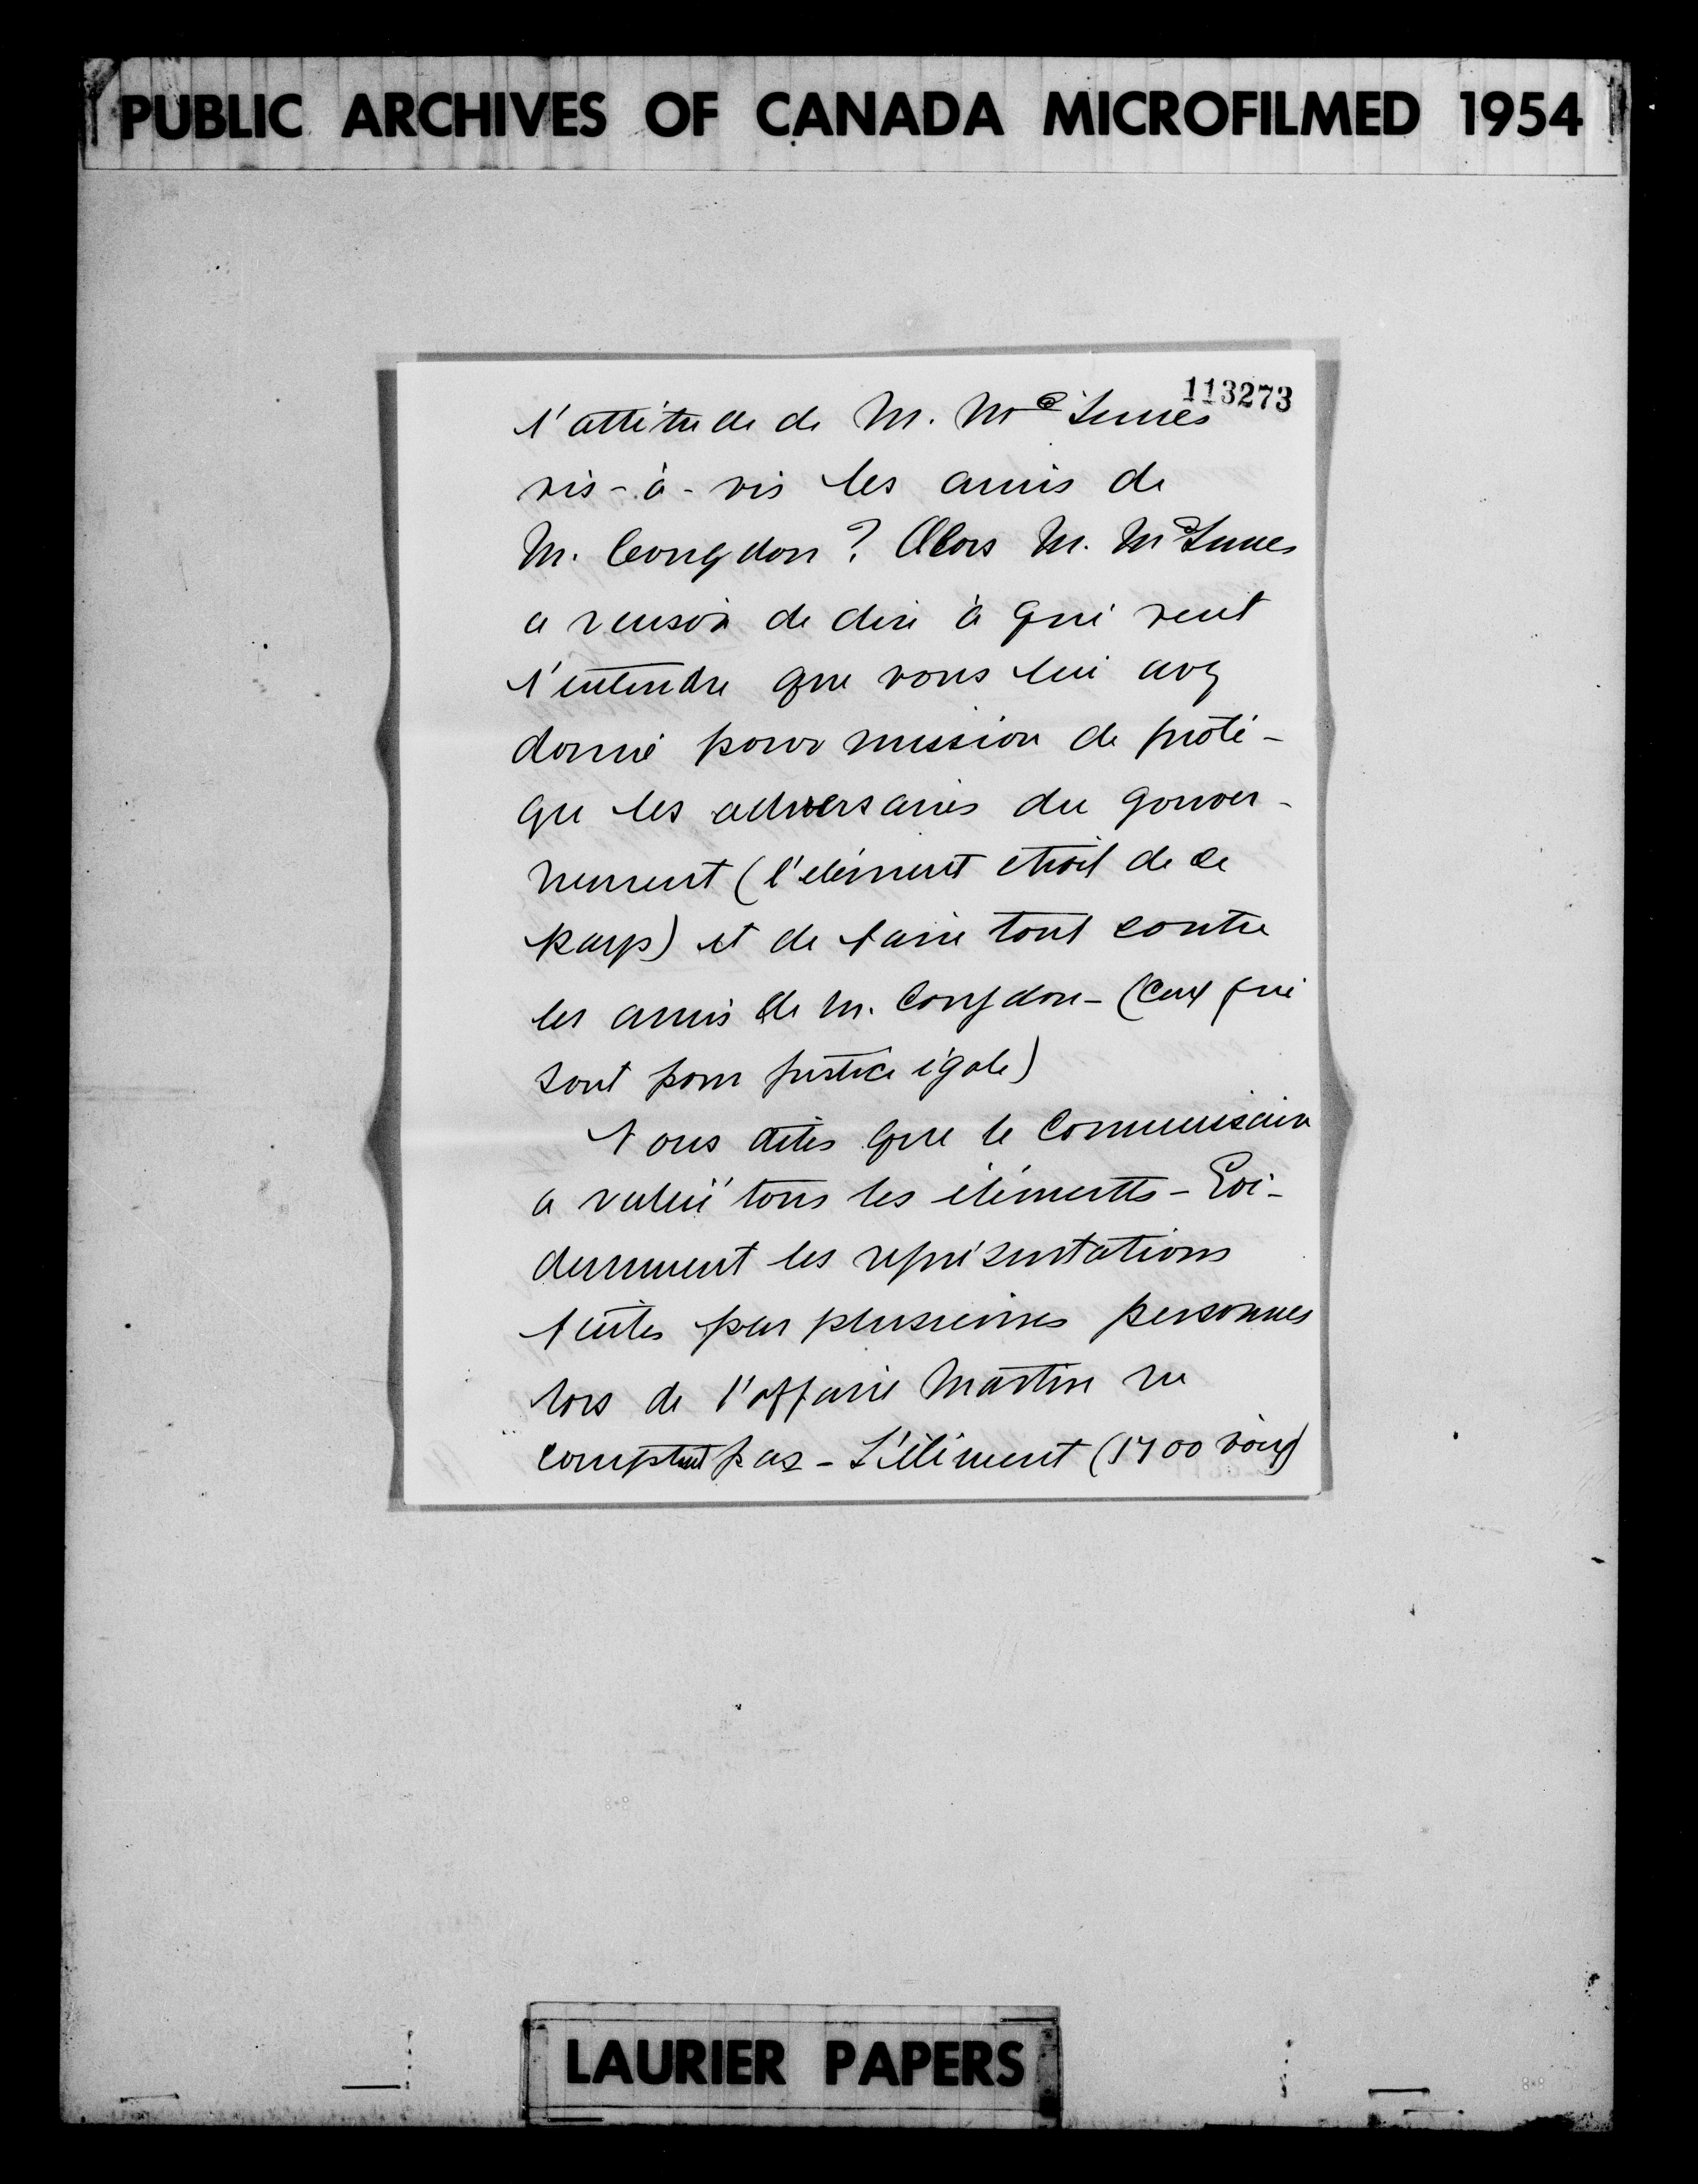 PUBLIC ARCHIVES OF CANADA MICROFILMED 1954
113273
l'attitude de M. McInnes
vis-à-vis les amis de
M. Congdon? Alors M. McInnes
a raison de dire à qui veut
l'entendre que vous lui avez
donné pour mission de proté-
ger les adversaires du gouver-
nement (l'élément étroit de ce
pays) et de faire tout contre
les amis de M. Congdon - (Ceux qui
sont pour justice égale)
Vous dites que le Commissaire
a rallié tous les éléments - Evi-
demment les représentations
faites par plusieurs personnes
lors de l'affaire Martin ne
comptent pas - L'élément (1700 voix)
LAURIER PAPERS